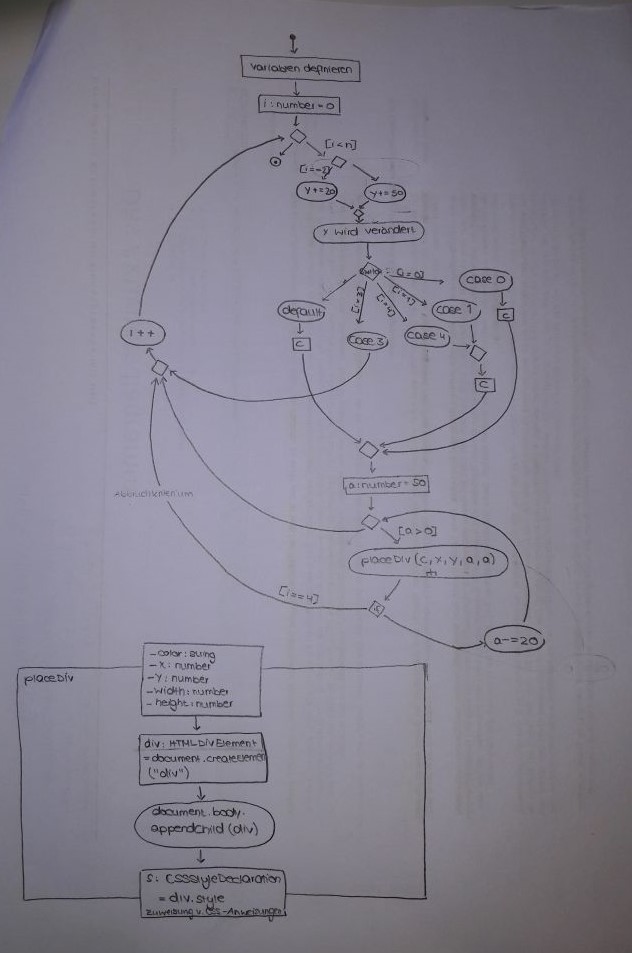 variablen definieren
i:number=0
[i<n]
[i==2]
y+=20
y+=50
y wird verändert
[i=0]
case 0
[i=3]
[i=4]
[i=1]
default
case 1
case 3
case 4
C
C
C
i++
a:number=50
[a>0]
placeDiv (c,x,y,a,a)
[i==4]
a-=20
placeDiv
-color: string
-x: number
-y: number
-width: number
-height: number
div: HTMLDivElement
=document.createElement
("div")
document.body.
appendChild (div)
s: CSSStyleDeclaration
= div.style
zuweisung v. CSS-Anweisungen